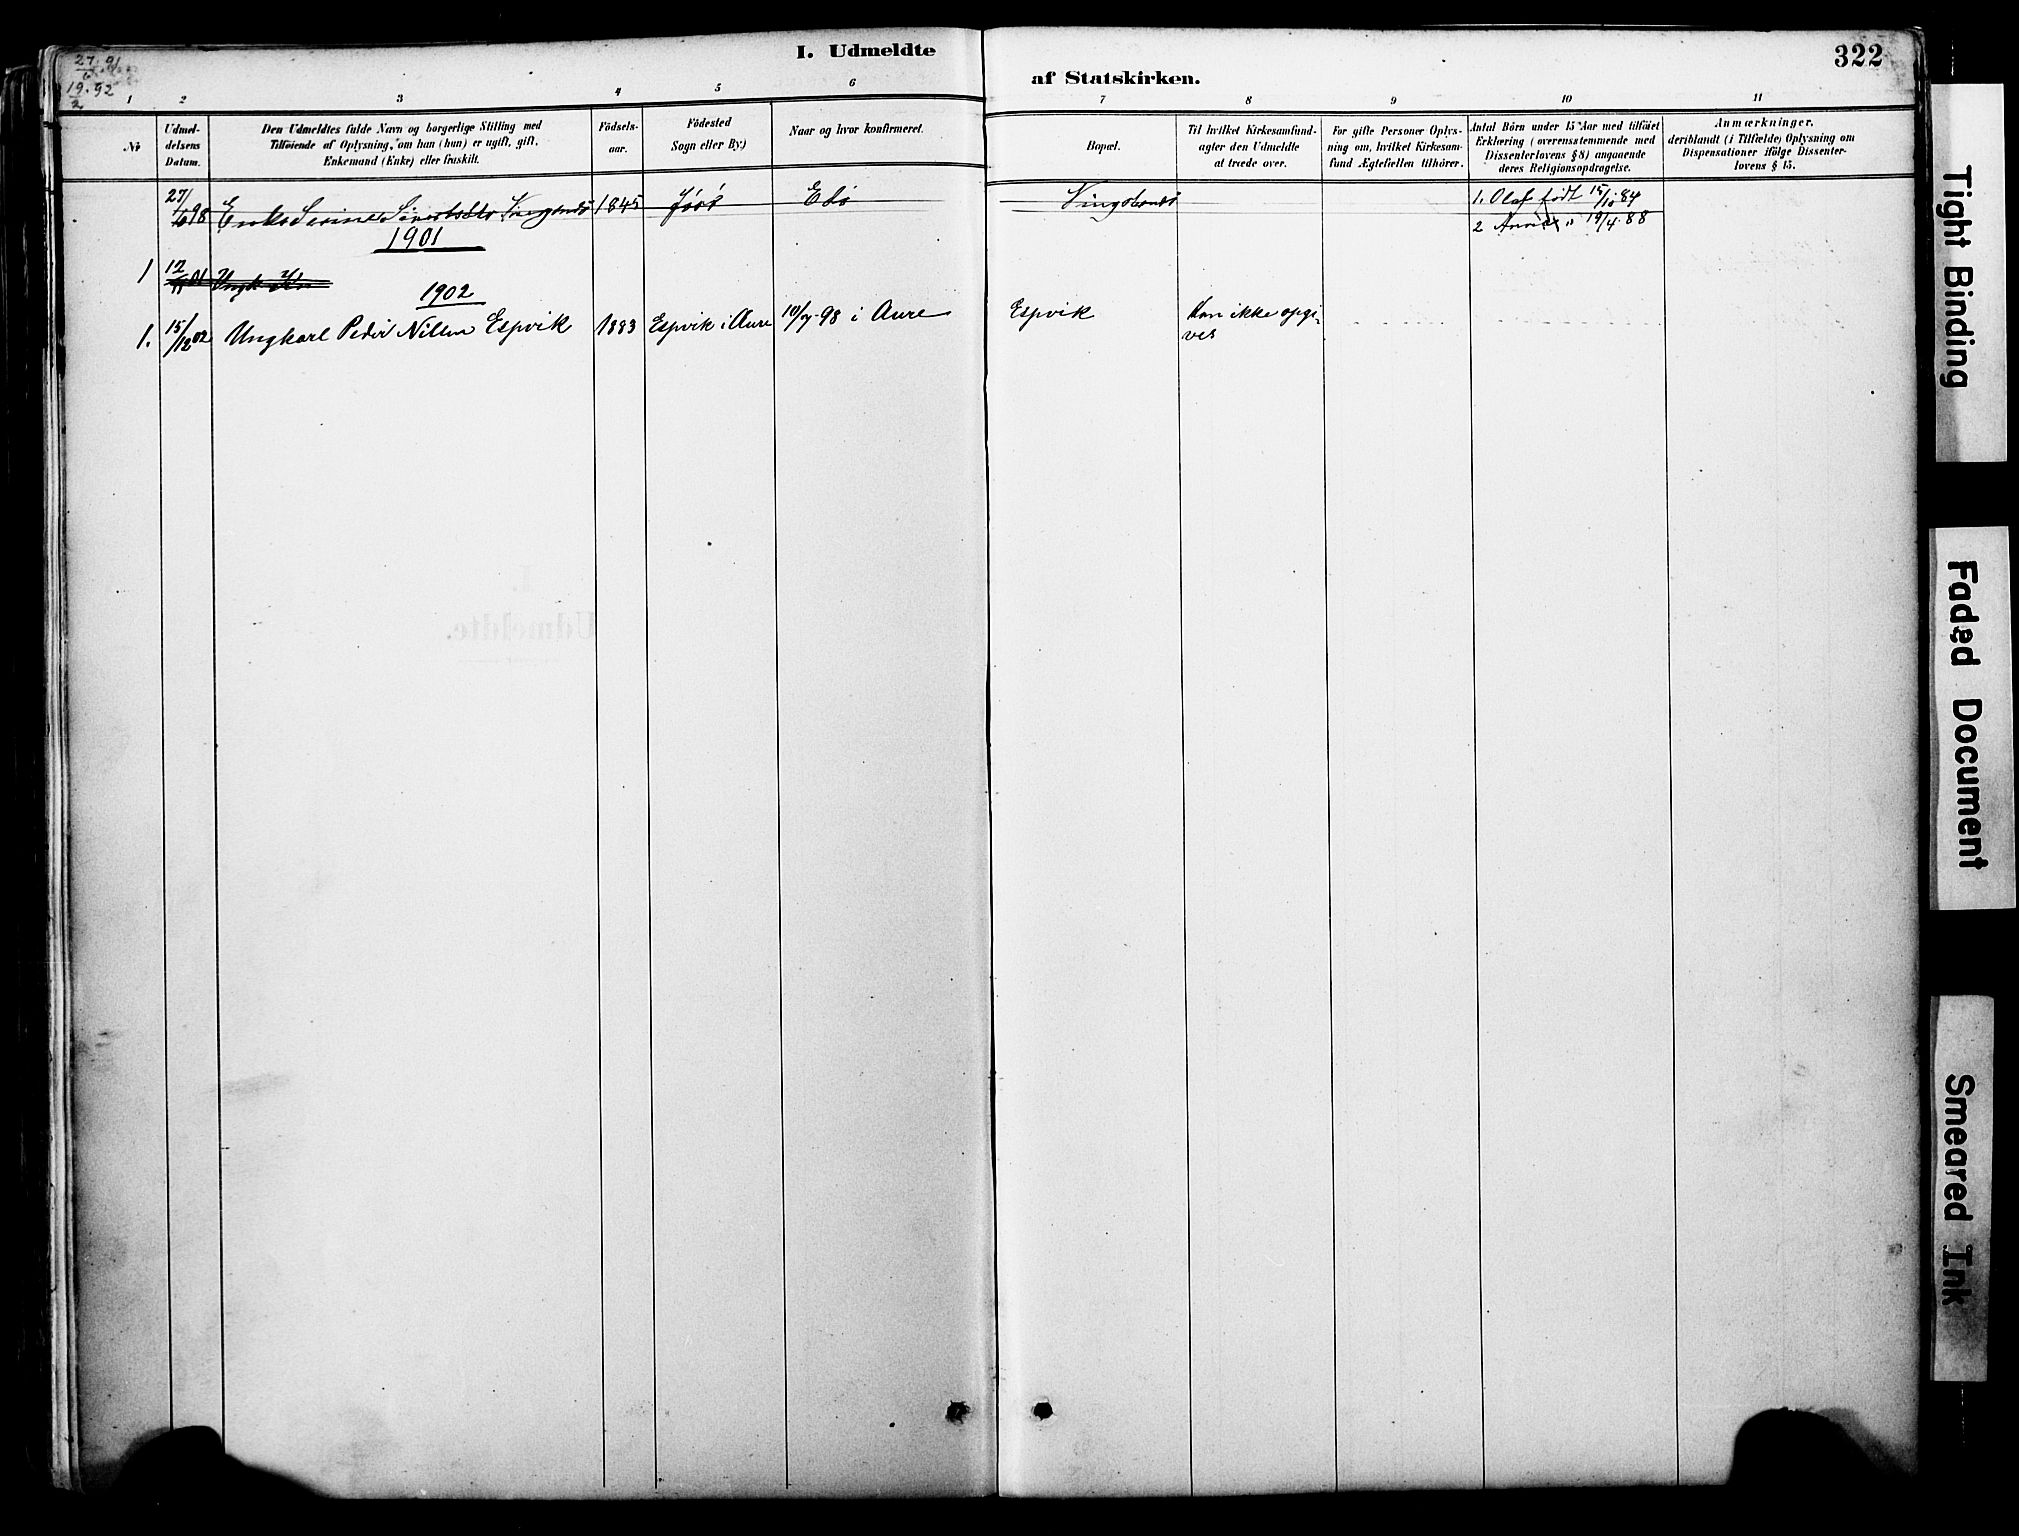 I. Udmeldte
af Statskirken.
322
27/6 91
19/2 92
1
2
3
4
5
6
7
8
9
10
11
No
Udmel-
delsens
Datum.
Den Udmeldtes fulde Navn og borgerlige Stilling med
Tilføiende af Oplysning, om han (hun) er ugift, gift,
Enkemand (Enke) eller fraskilt.
Födsels-
aar.
Födested
Sogn eller By.)
Naar og hvor konfirmeret.
Bopæl.
Til hvilket Kirkesamfund-
agter den Udmeldte
at træde over.
For gifte Personer Oplys-
ning om, hvilket Kirkesam-
fund Ægtefællen tilhörer.
Antal Börn under 15 Aar med tilföiet
Erklæring (overensstemmende med
Dissenterlovens § 8) angaaende
deres Religionsopdragelse.
Anmærkninger,
deriblandt (i Tilfælde) Oplysning om
Dispensationer ifölge Dissenter-
lovens § 15.
27/6 98 Enke Serine Sivertsdtr 1845 Edö 1. Olaf födt 15/10 84
2 19/4 88
1901
1 12/11 01 Ungk
1902
1. 15/12 02 Ungkarl Peder Nilsen Espvik 1883 Espvik i Aure 10/7-98 i Aure Espvik kan ikke opgi-
ves
Tight Binding
Faded Document
Smeared Ink